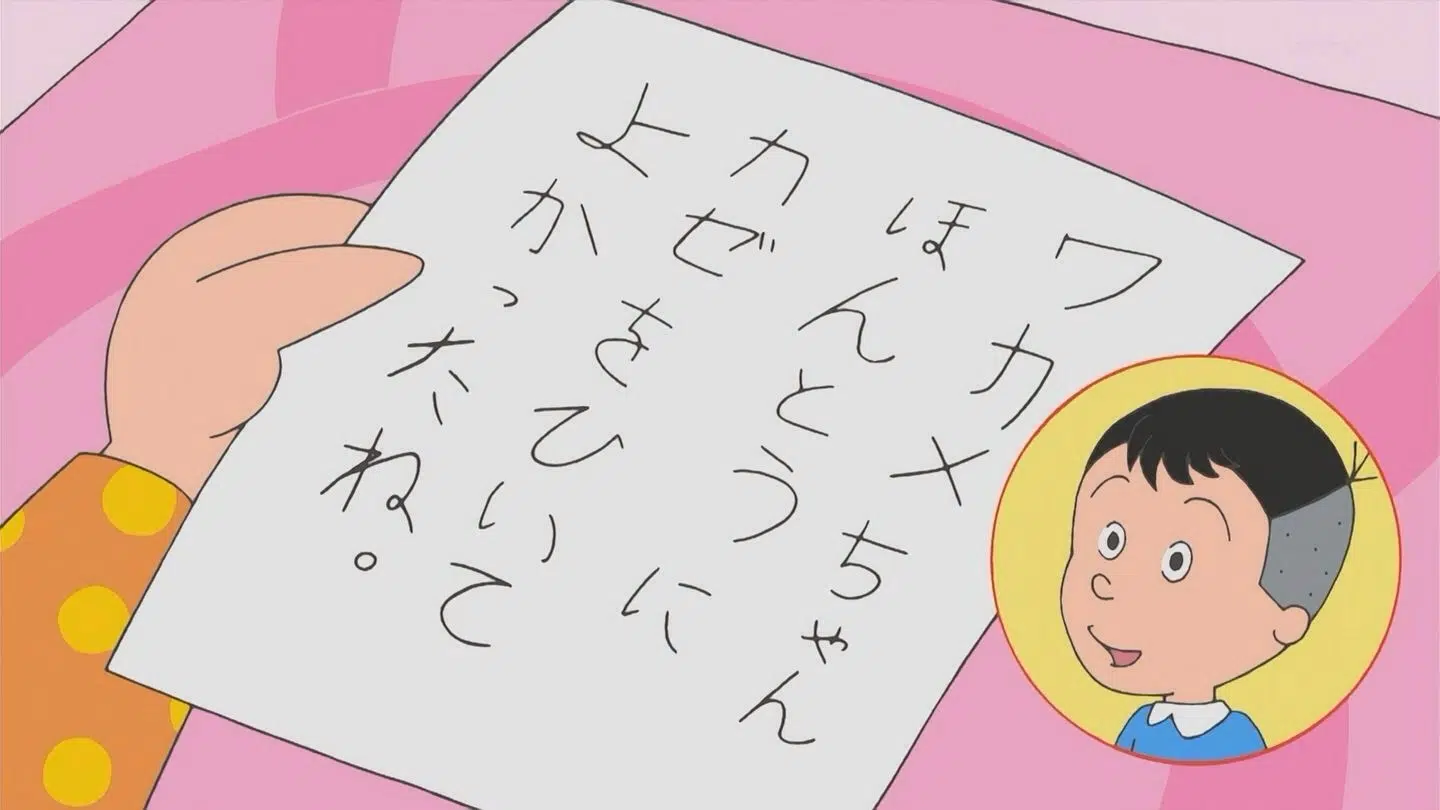 ワカメちゃん
ほんとうに
カゼをひいて
よかったね。